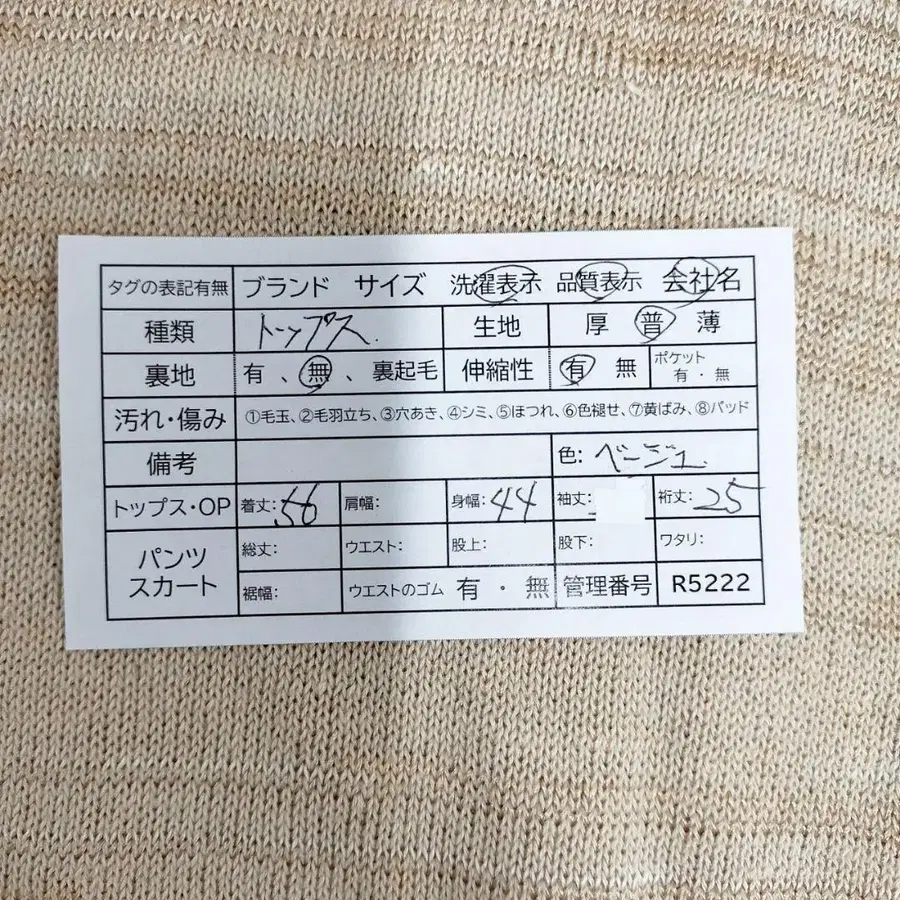 タグの表記有無 ブランド サイズ 洗濯表示 品質表示 会社名
種類 トップス. 生地 厚 普 薄
裏地 有 、 無 、 裏起毛 伸縮性 有 無 ポケット 有 ・ 無
汚れ・傷み ①毛玉、②毛羽立ち、③穴あき、④シミ、⑤ほつれ、⑥色褪せ、⑦黄ばみ、⑧パッド
備考 色: ベージュ
トップス・OP 着丈:56 肩幅: 身幅:44 袖丈: 裄丈:25
パンツ スカート 総丈: ウエスト: 股上: 股下: ワタリ:
裾幅: ウエストのゴム 有 ・ 無 管理番号 R5222